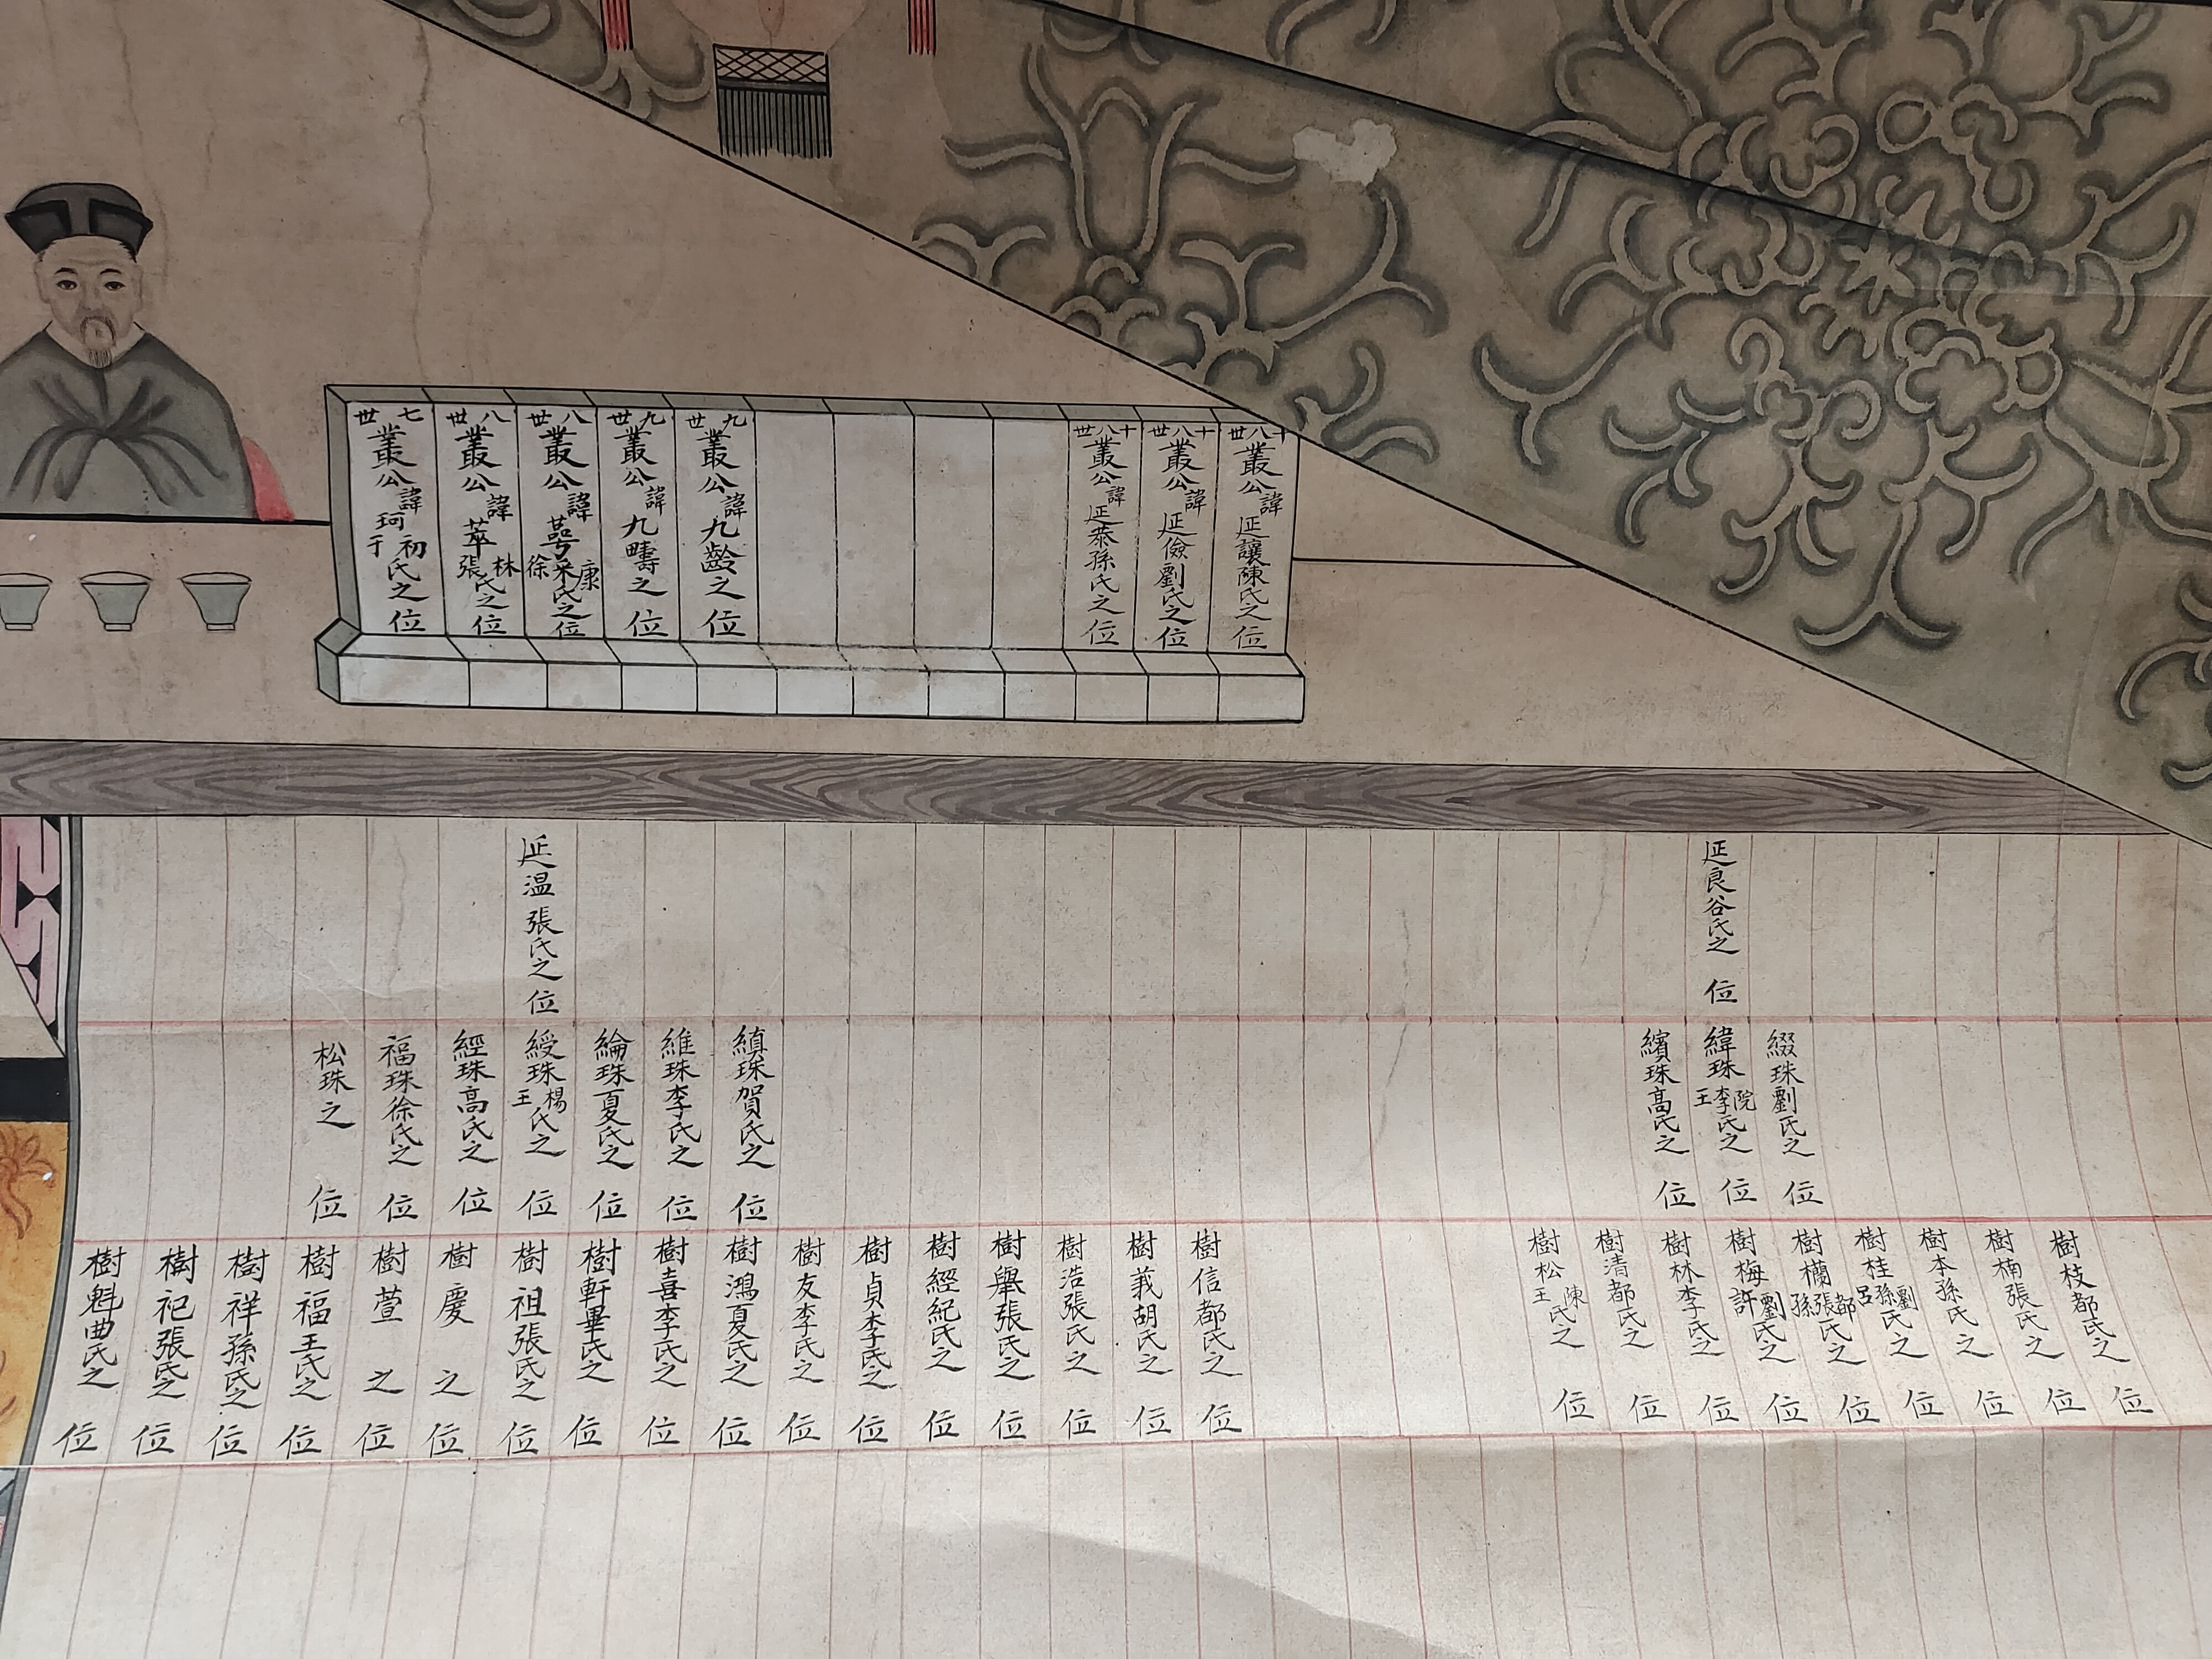 七世叢公諱珂初于氏之位
八世叢公諱萃林張氏之位
八世叢公諱萼康宋徐氏之位
九世叢公諱九疇之位
九世叢公諱九齡之位
十八世叢公諱延恭孫氏之位
十八世叢公諱延儉劉氏之位
十八世叢公諱延讓陳氏之位
延溫張氏之位
延良谷氏之位
松珠之位
福珠徐氏之位
經珠高氏之位
綬珠楊王氏之位
綸珠夏氏之位
維珠李氏之位
縝珠賀氏之位
繽珠高氏之位
緯珠院李王氏之位
綴珠劉氏之位
樹魁曲氏之位
樹祀張氏之位
樹祥孫氏之位
樹福王氏之位
樹萱之位
樹慶之位
樹祖張氏之位
樹軒畢氏之位
樹喜李氏之位
樹鴻夏氏之位
樹友李氏之位
樹貞李氏之位
樹經紀氏之位
樹舉張氏之位
樹浩張氏之位
樹義胡氏之位
樹信都氏之位
樹松陳王氏之位
樹清都氏之位
樹林李氏之位
樹梅劉許氏之位
樹欗都張孫氏之位
樹桂劉孫呂氏之位
樹本孫氏之位
樹楠張氏之位
樹枝都氏之位